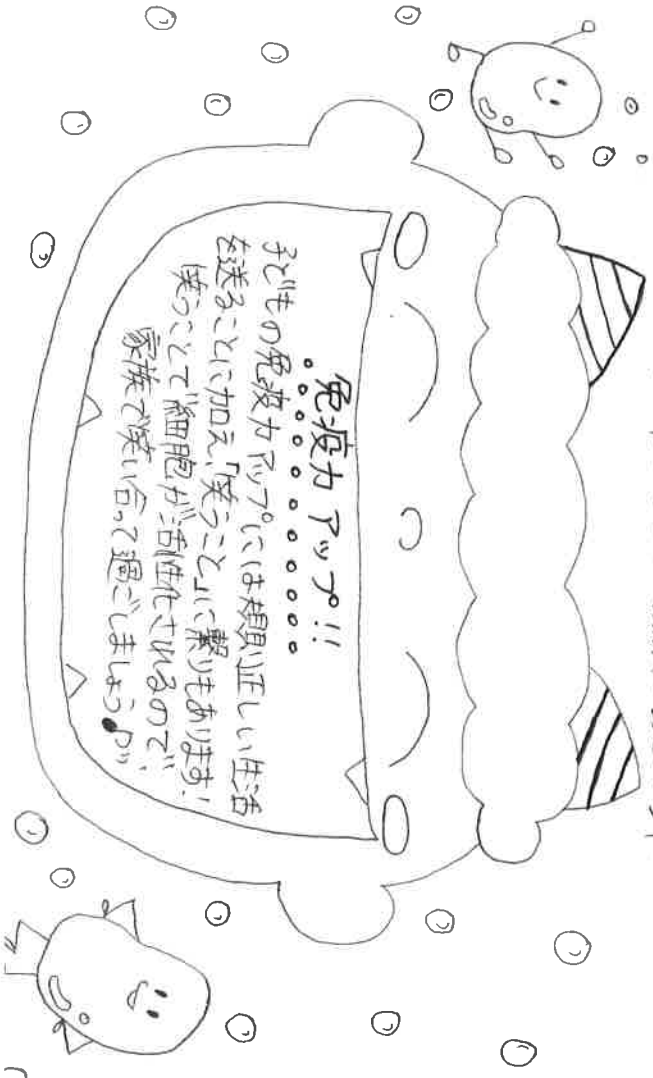 免疫力アップ!!
子どもの免疫力アップには規則正しい生活
を送ることに加え、「笑うこと」に繋りもあります!
笑うことで細胞が活性化されるので
家族で笑い合って過ごしましょう